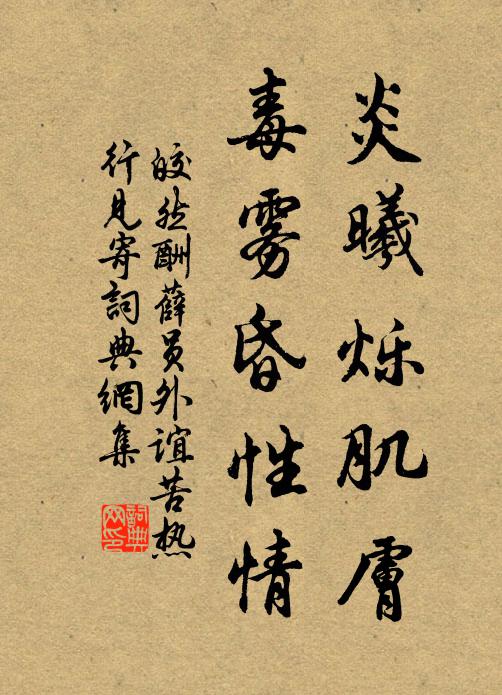 炎曦烁肌膚
毒雾昏性情
皎然酬薛员外谊苦热
行見寄詞典網集